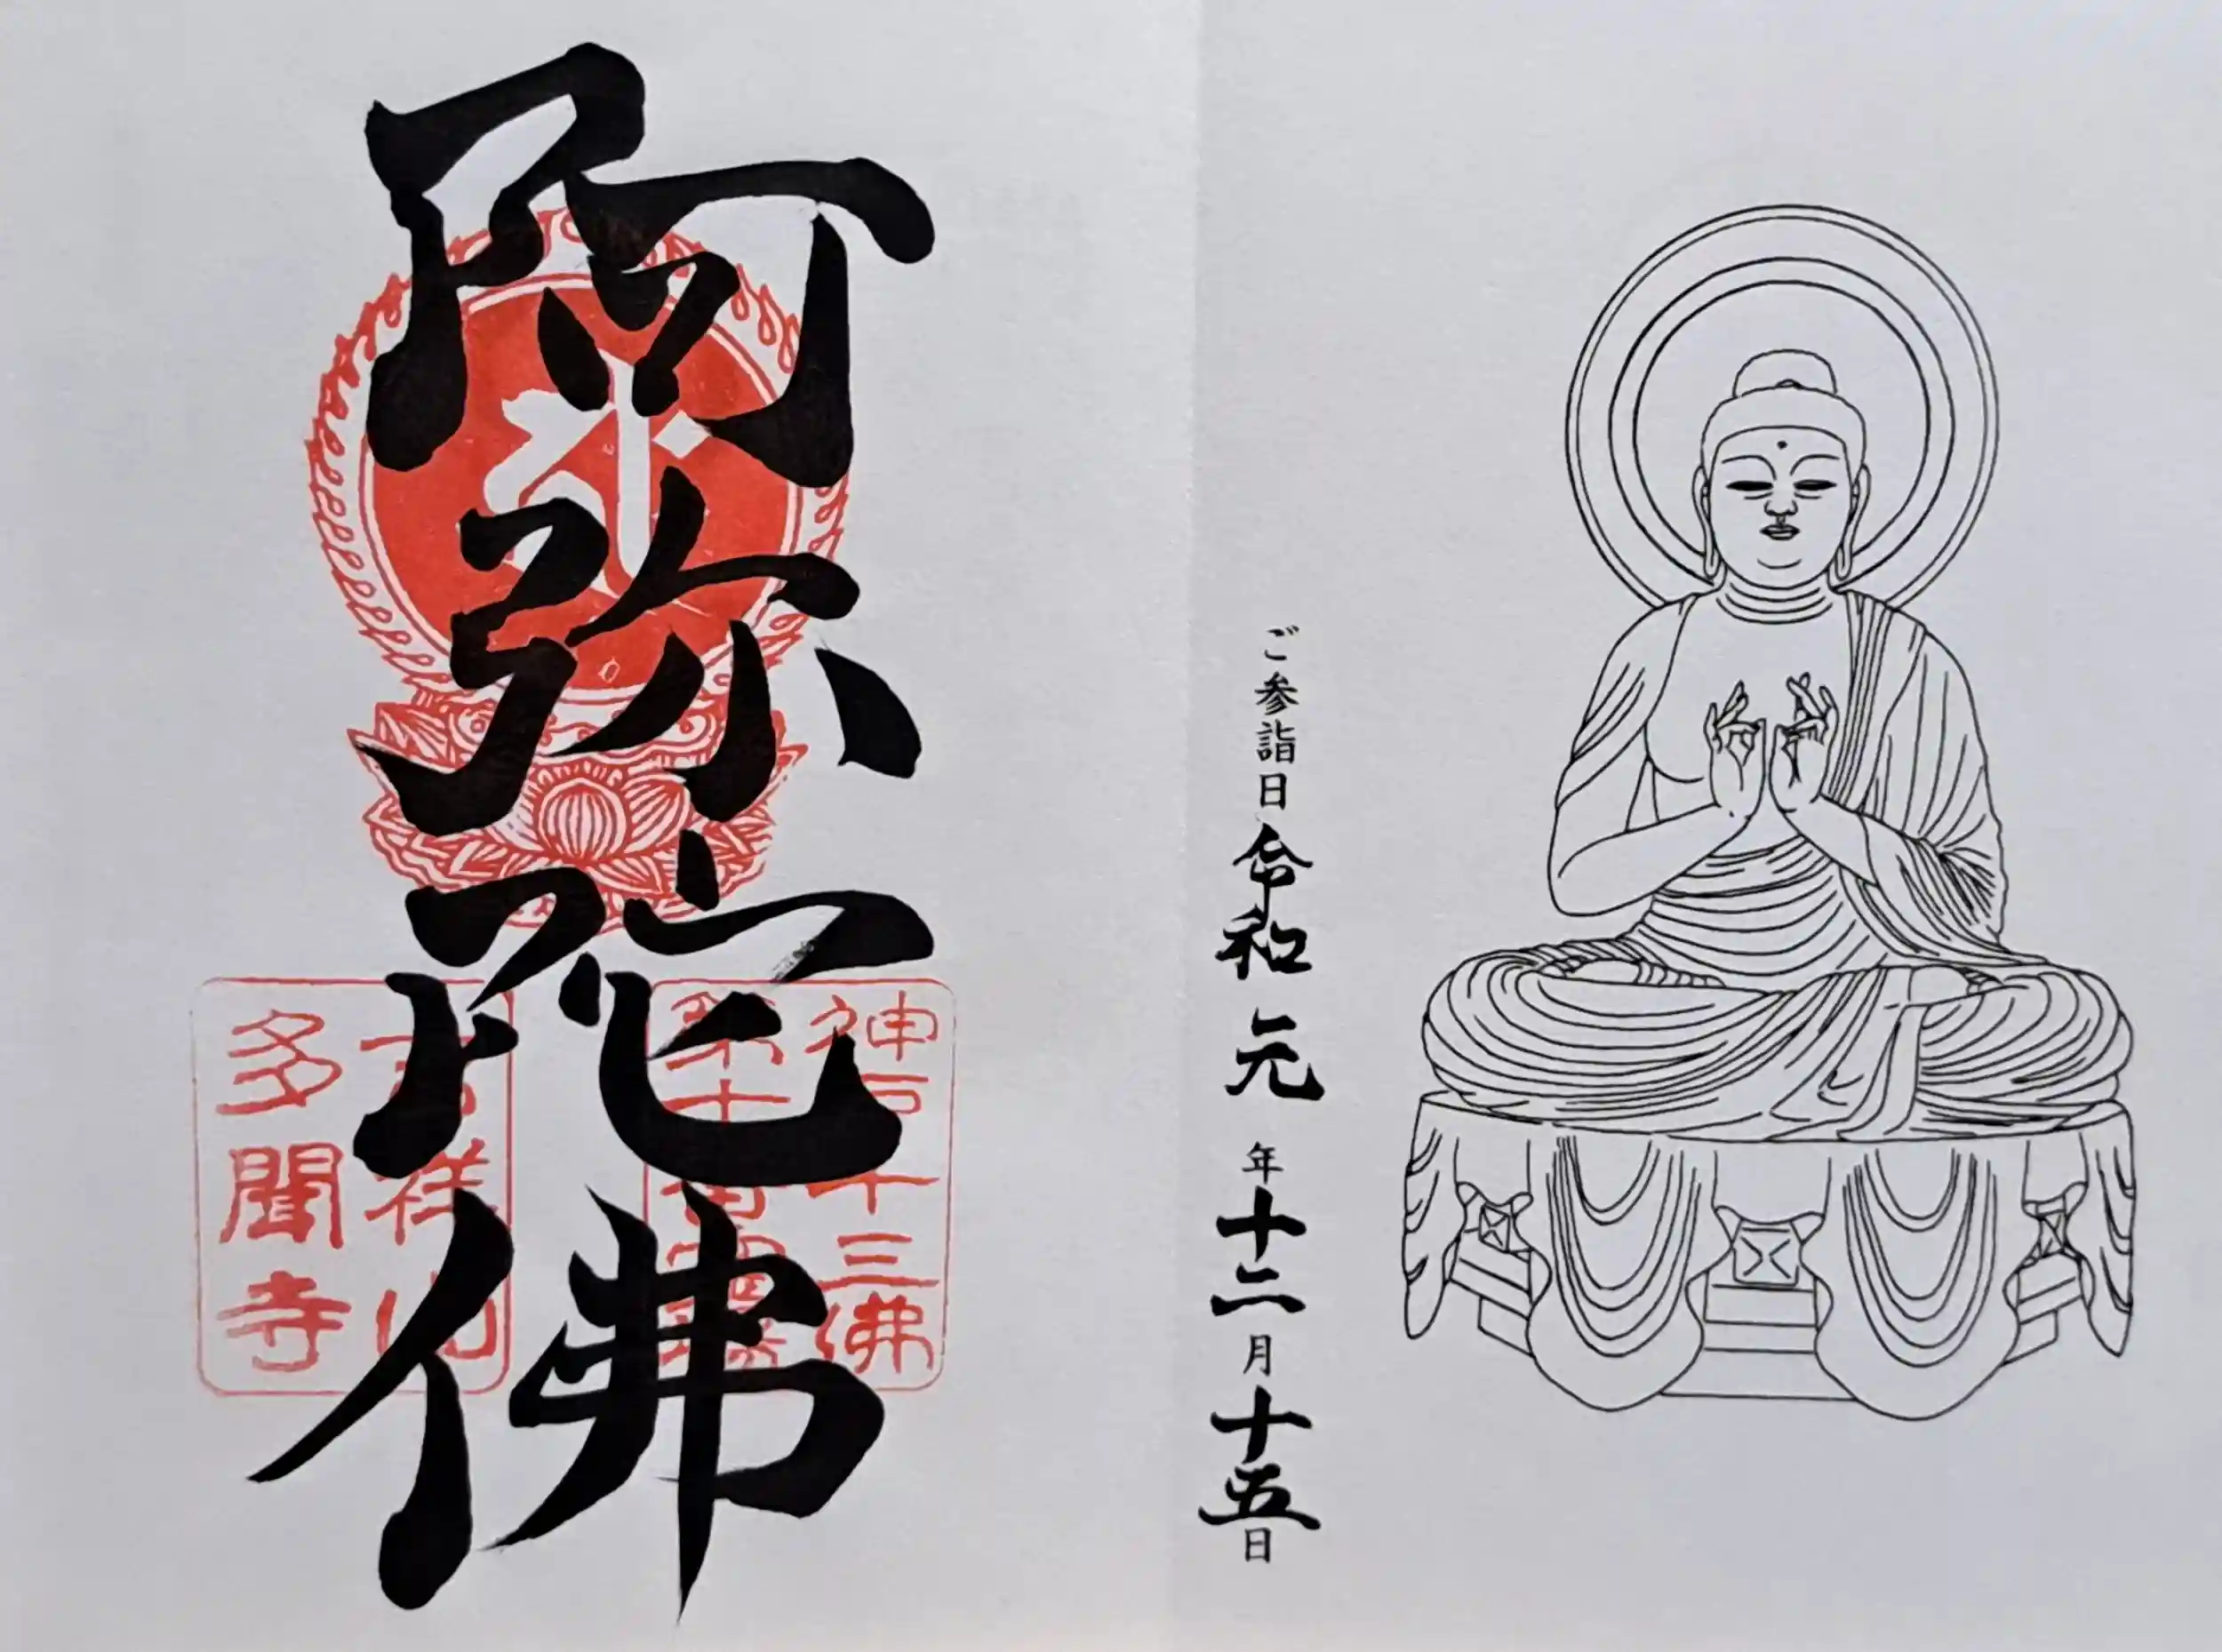 ご参詣日 令和元年十二月十五日
阿弥陀佛
神戸十三佛
第十番霊場
吉祥山
多聞寺